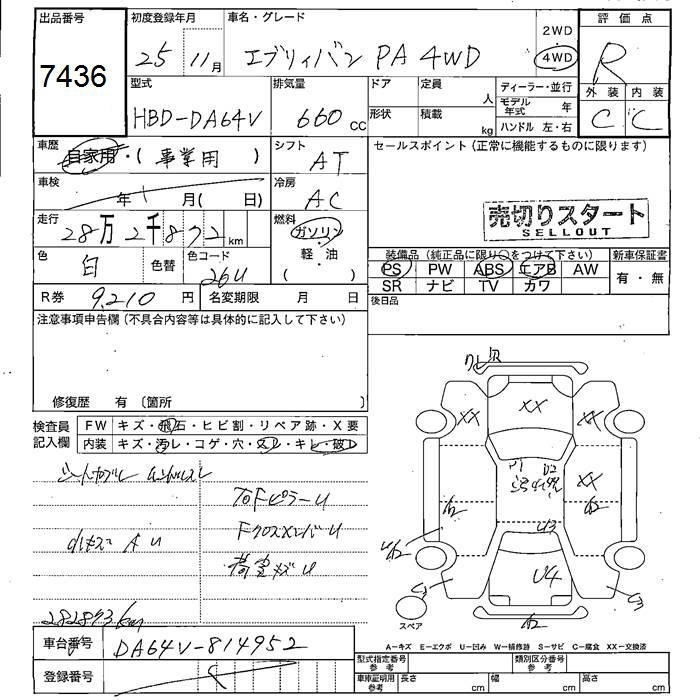 出品番号 初度登録年月 車名・グレード 2WD 評価点
7436 25 11月 エブリィバン PA 4WD 4WD R
型式 排気量 ドア 定員 人 ディーラー・並行 外装 内装
HBD-DA64V 660cc 形状 積載 kg モデル年式 年 C C
ハンドル 左・右
車歴 自家用・(事業用) シフト AT セールスポイント(正常に機能するものに限ります)
車検 年 月(日) 冷房 AC
売切りスタート
SELLOUT
走行 28万2千872km 燃料 ガソリン
軽・油
( )
色 白 色替 色コード 26U
装備品(純正品に限り○をつけて下さい) 新車保証書
PS PW ABS エアB AW 有・無
SR ナビ TV カワ
R券 9,210円 名変期限 月 日 後日品
注意事項申告欄(不具合内容等は具体的に記入して下さい)
修復歴 有(箇所 )
検査員記入欄 FW キズ・飛石・ヒビ割・リペア跡・X要
内装 キズ・汚レ・コゲ・穴・スレ・キレ・破レ
TOFピラーU
FクロスメンバU
荷室キズU
AU
282873km
XX
XX
XX
U3
U4
スペア
A-キズ E-エクボ U-凹み W-補修跡 S-サビ C-腐食 XX-交換済
車台番号 DA64V-814952
登録番号
型式指定番号 参考 類別区分番号 参考
車庫証明用 参考 長さ cm 幅 cm 高さ cm